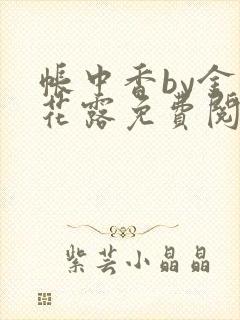 帳中香by金
花露免費閱
紫芸小晶晶